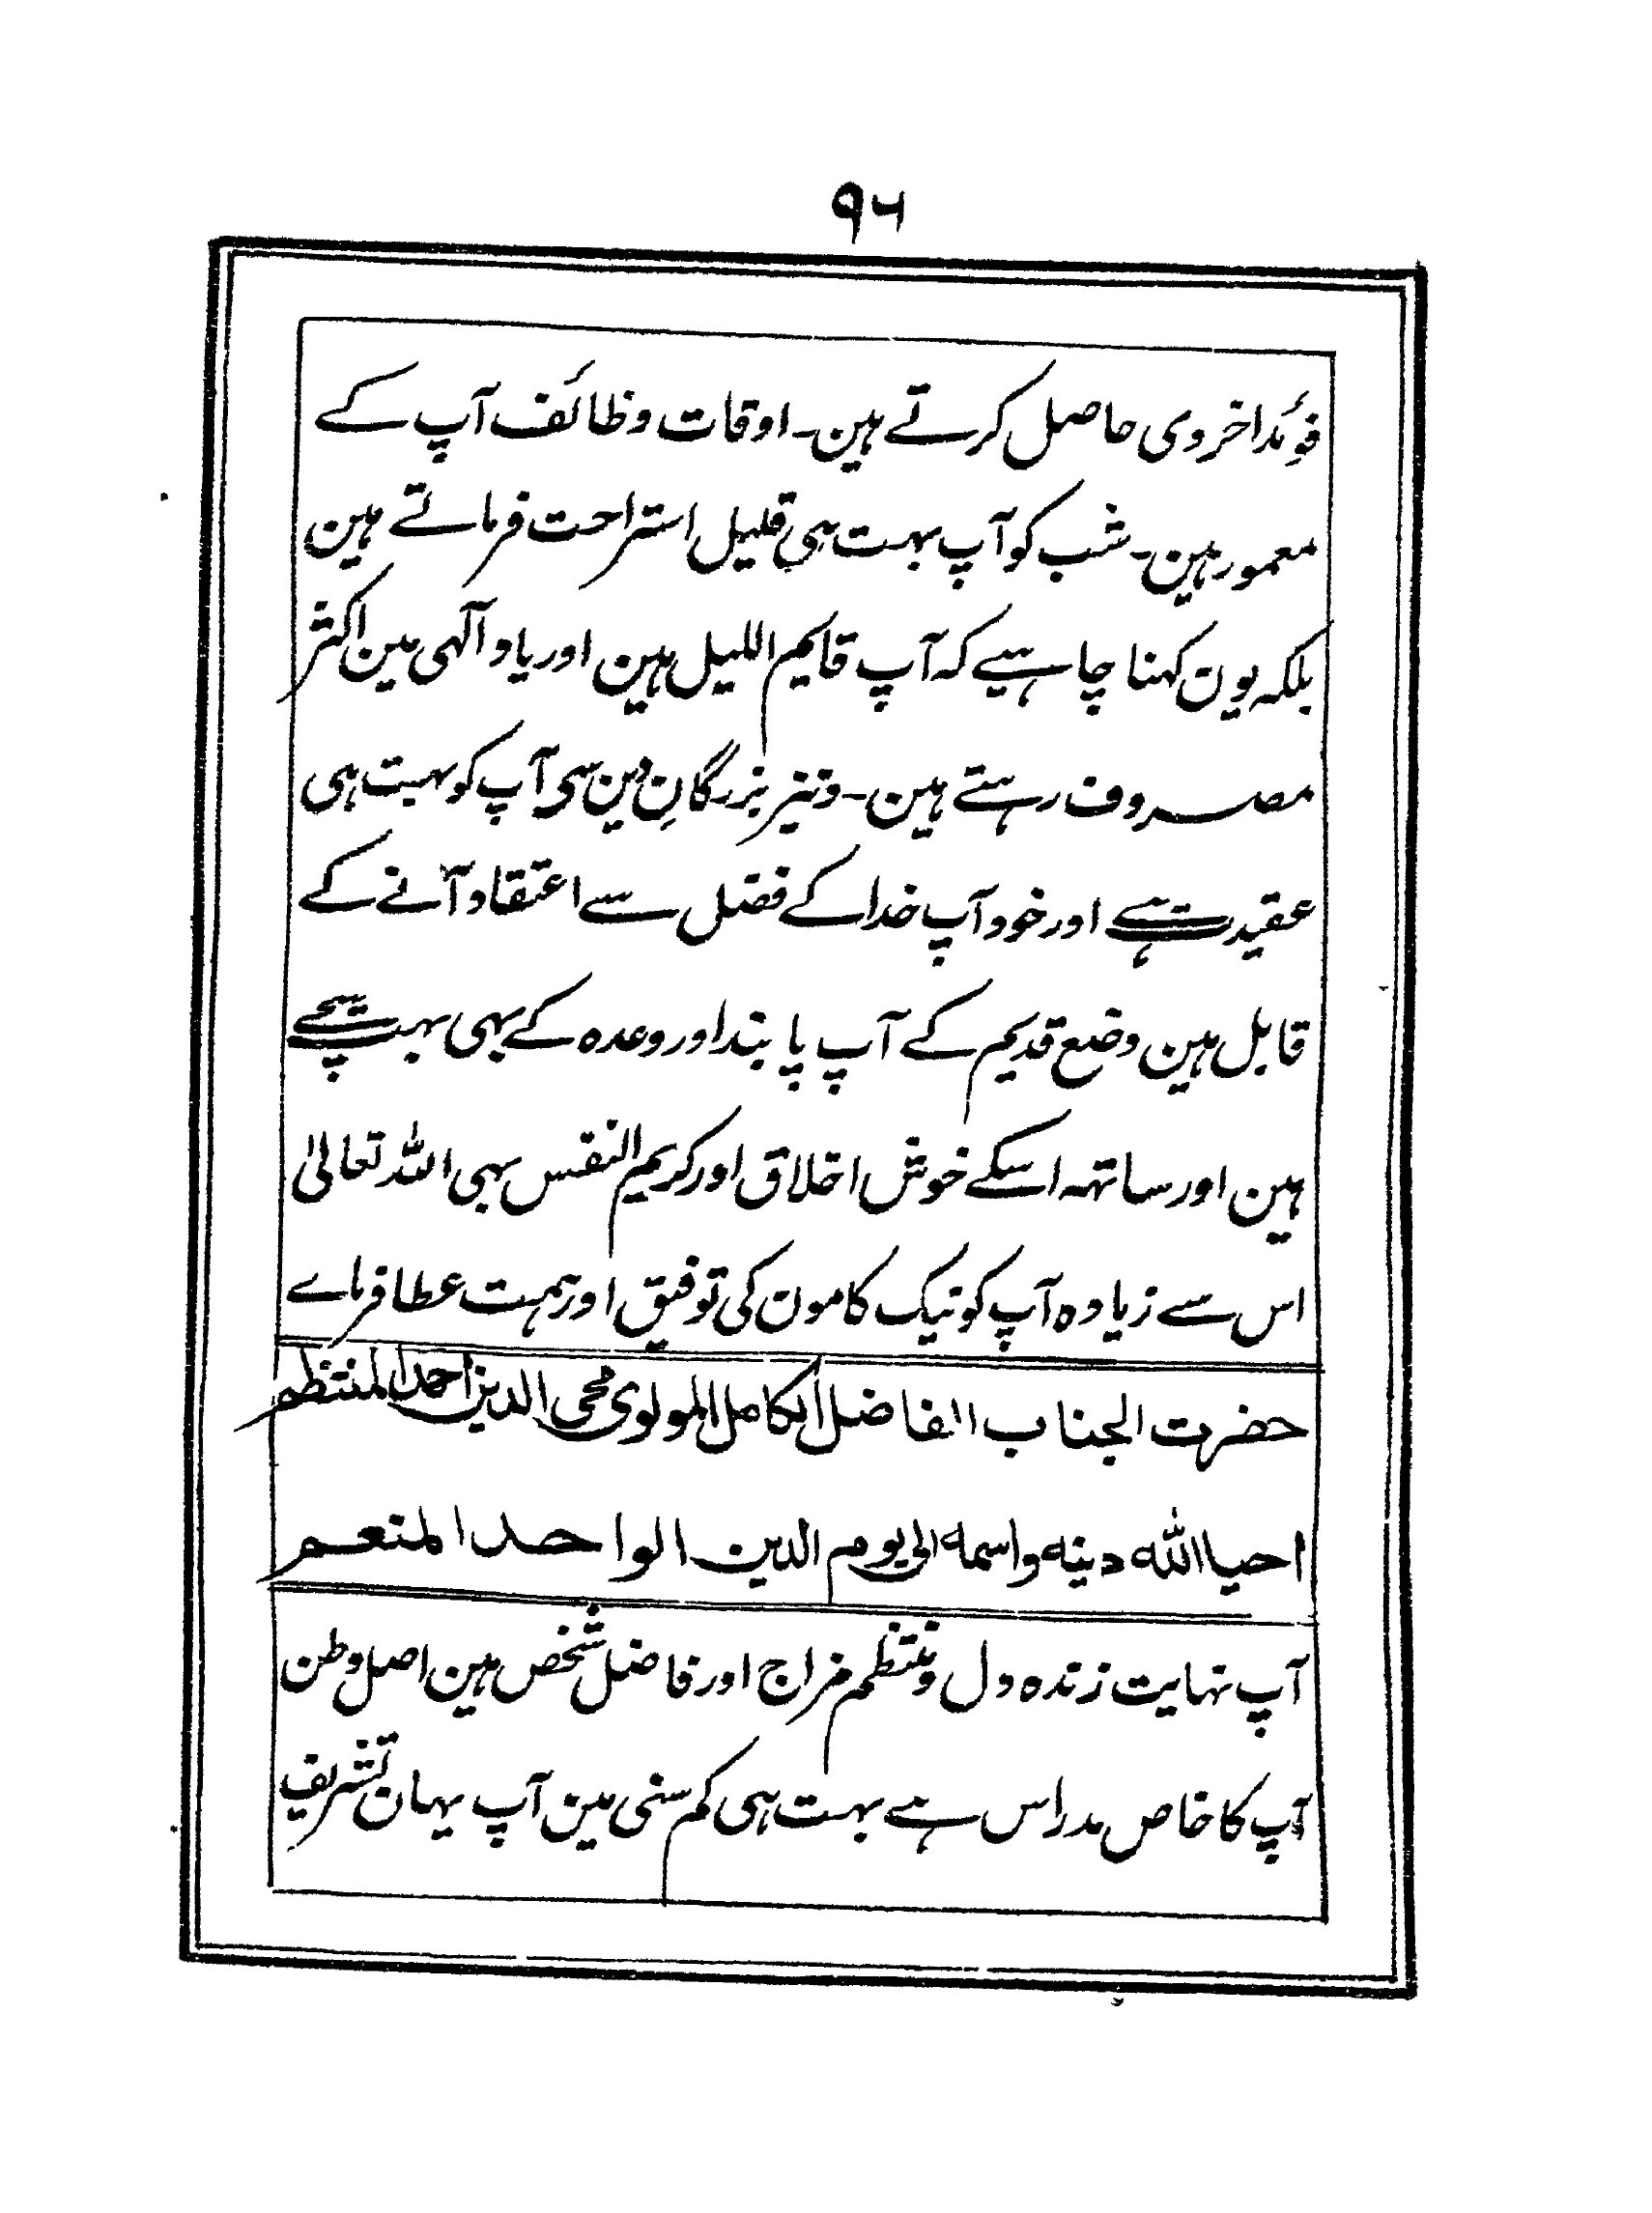 ۹۶
فوئد اخروی حاصل کرتے ہین۔ اوقات وظائف آپ کے
معمور ہین۔ شب کو آپ بہت ہی قلیل استراحت فرماتے ہین
بلکہ یون کہنا چاہیے کہ آپ قایم اللیل ہین اور یاد آلہی مین اکثر
مصروف رہتے ہین۔ ونیز بزرگانِ دین سی آپ کو بہت ہی
عقیدت ہے اور خود آپ خدا کے فضل سے اعتقاد آنے کے
قابل ہین وضع قدیم کے آپ پابند اور وعدہ کے بہی بہت سچے
ہین اور ساتہہ اسکے خوش اخلاق اور کریم النفس بہی اللہ تعالیٰ
اس سے زیادہ آپ کو نیک کامون کی توفیق اور ہمت عطا فرماے
حضرت الجناب الفاضل الکامل المولوی محی الدین احمد المنتظم
احیا اللہ دینہ واسمہ الی یوم الدین الواحد المنعم
آپ نہایت زندہ دل ومنتظم مزاج اور فاضل شخص ہین اصل وطن
آپ کا خاص مدراس ہے بہت ہی کم سنی مین آپ یہان تشریف